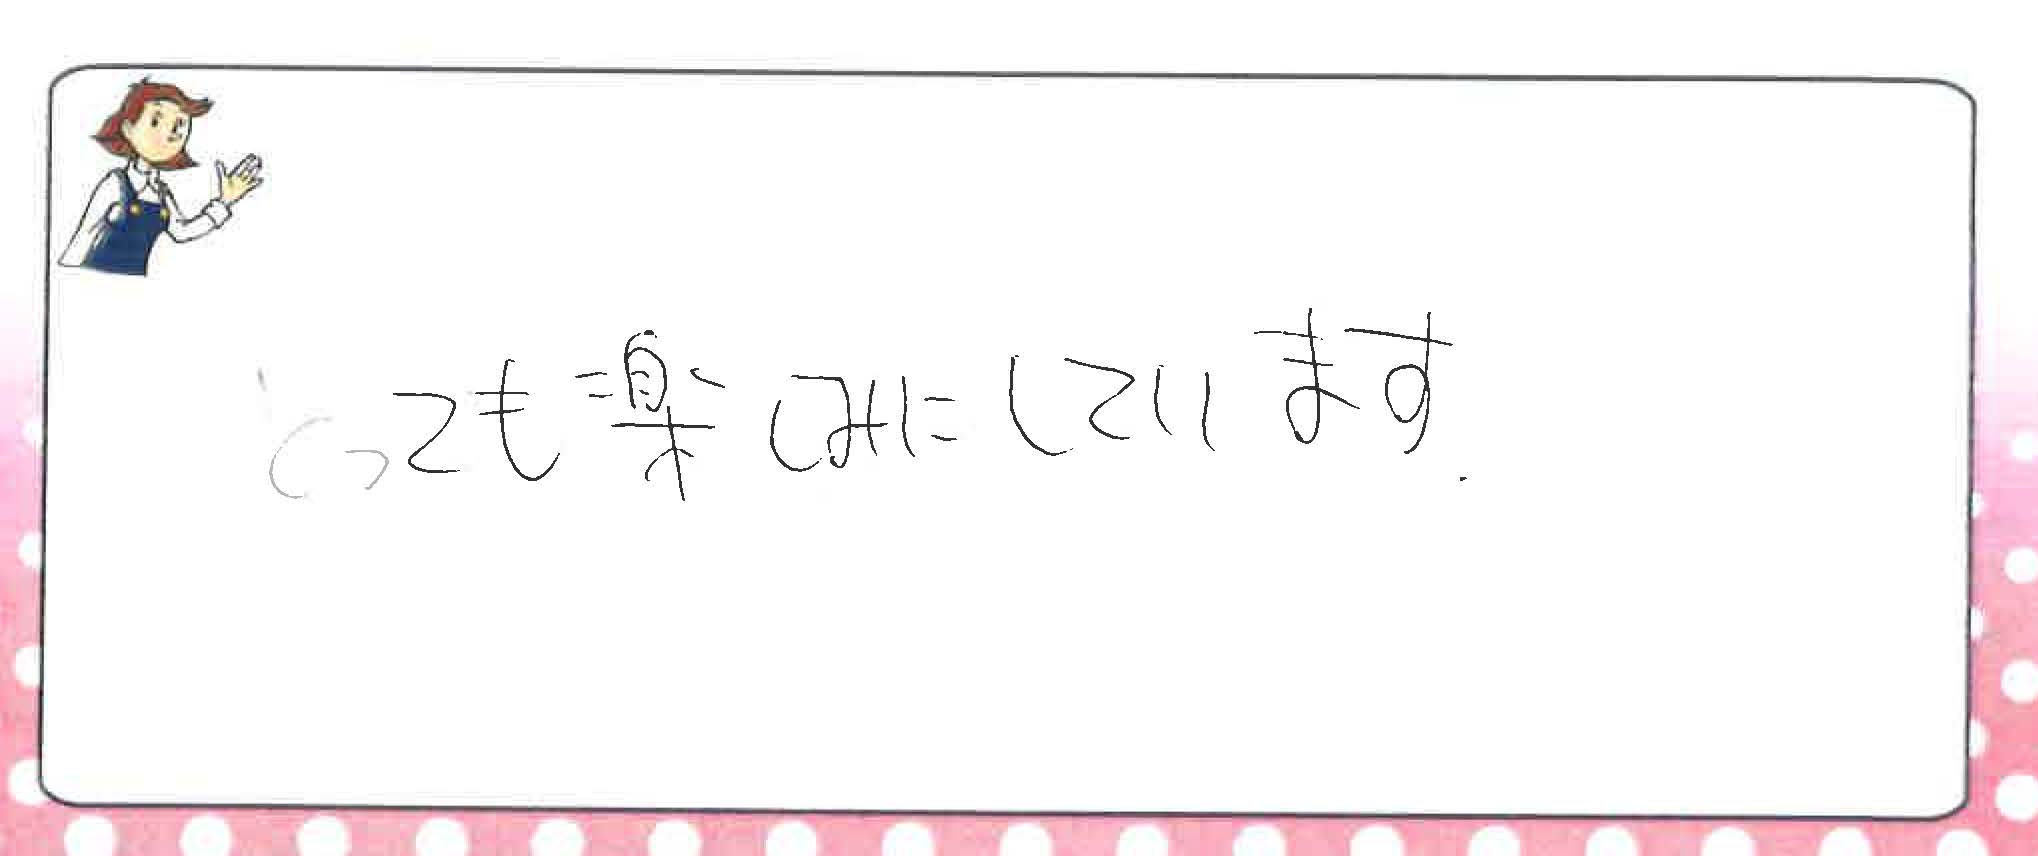 とっても楽しみにしています.